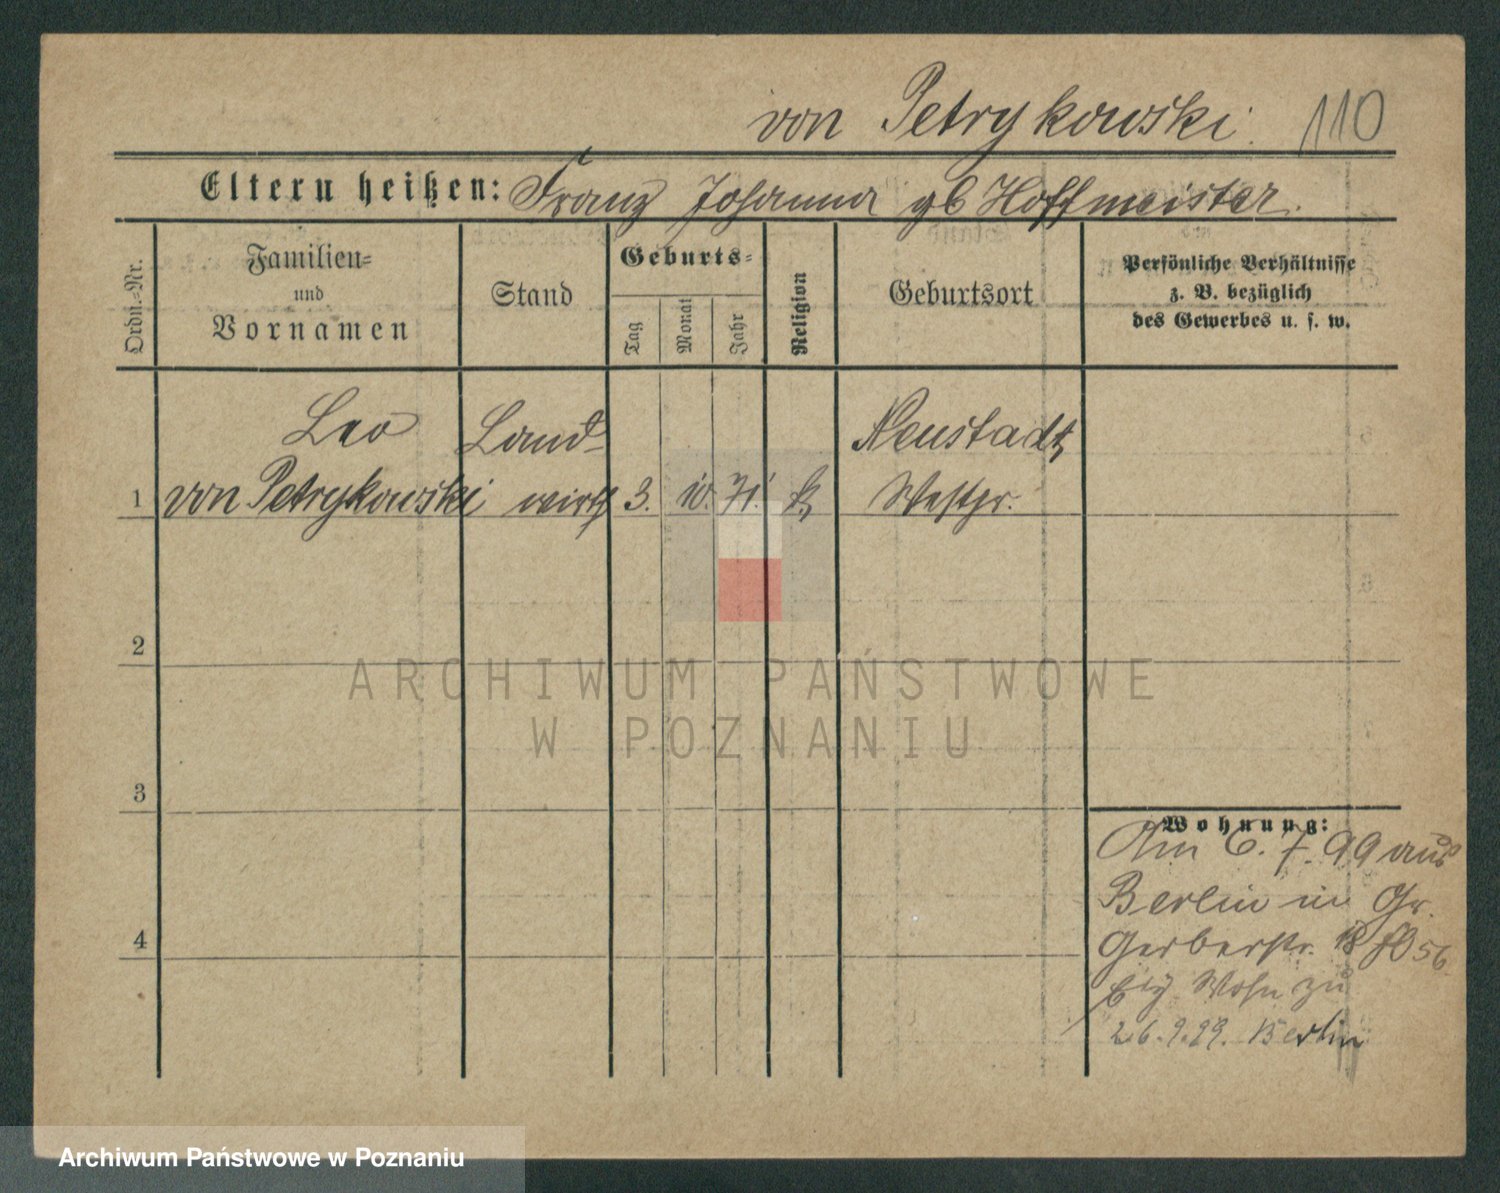 von Petrykowski. 110
Eltern heißen: Franz Johanna gb Hoffmeister.
Ordn.=Nr.
Familien=
und
Vornamen
Stand
Geburts=
Tag
Monat
Jahr
Religion
Geburtsort
Persönliche Verhältnisse
z. B. bezüglich
des Gewerbes u. s. w.
Leo Land- Neustadt,
1 von Petrykowski wirth 3. 10. 71. k, Westpr.
2
ARCHIWUM PAŃSTWOWE
W POZNANIU
3
Wohnung:
Am 6. 7. 99 aus
Berlin in Gr.
4
Gerberstr. 18
Wohn zu
26.9.99. Berlin
Archiwum Państwowe w Poznaniu